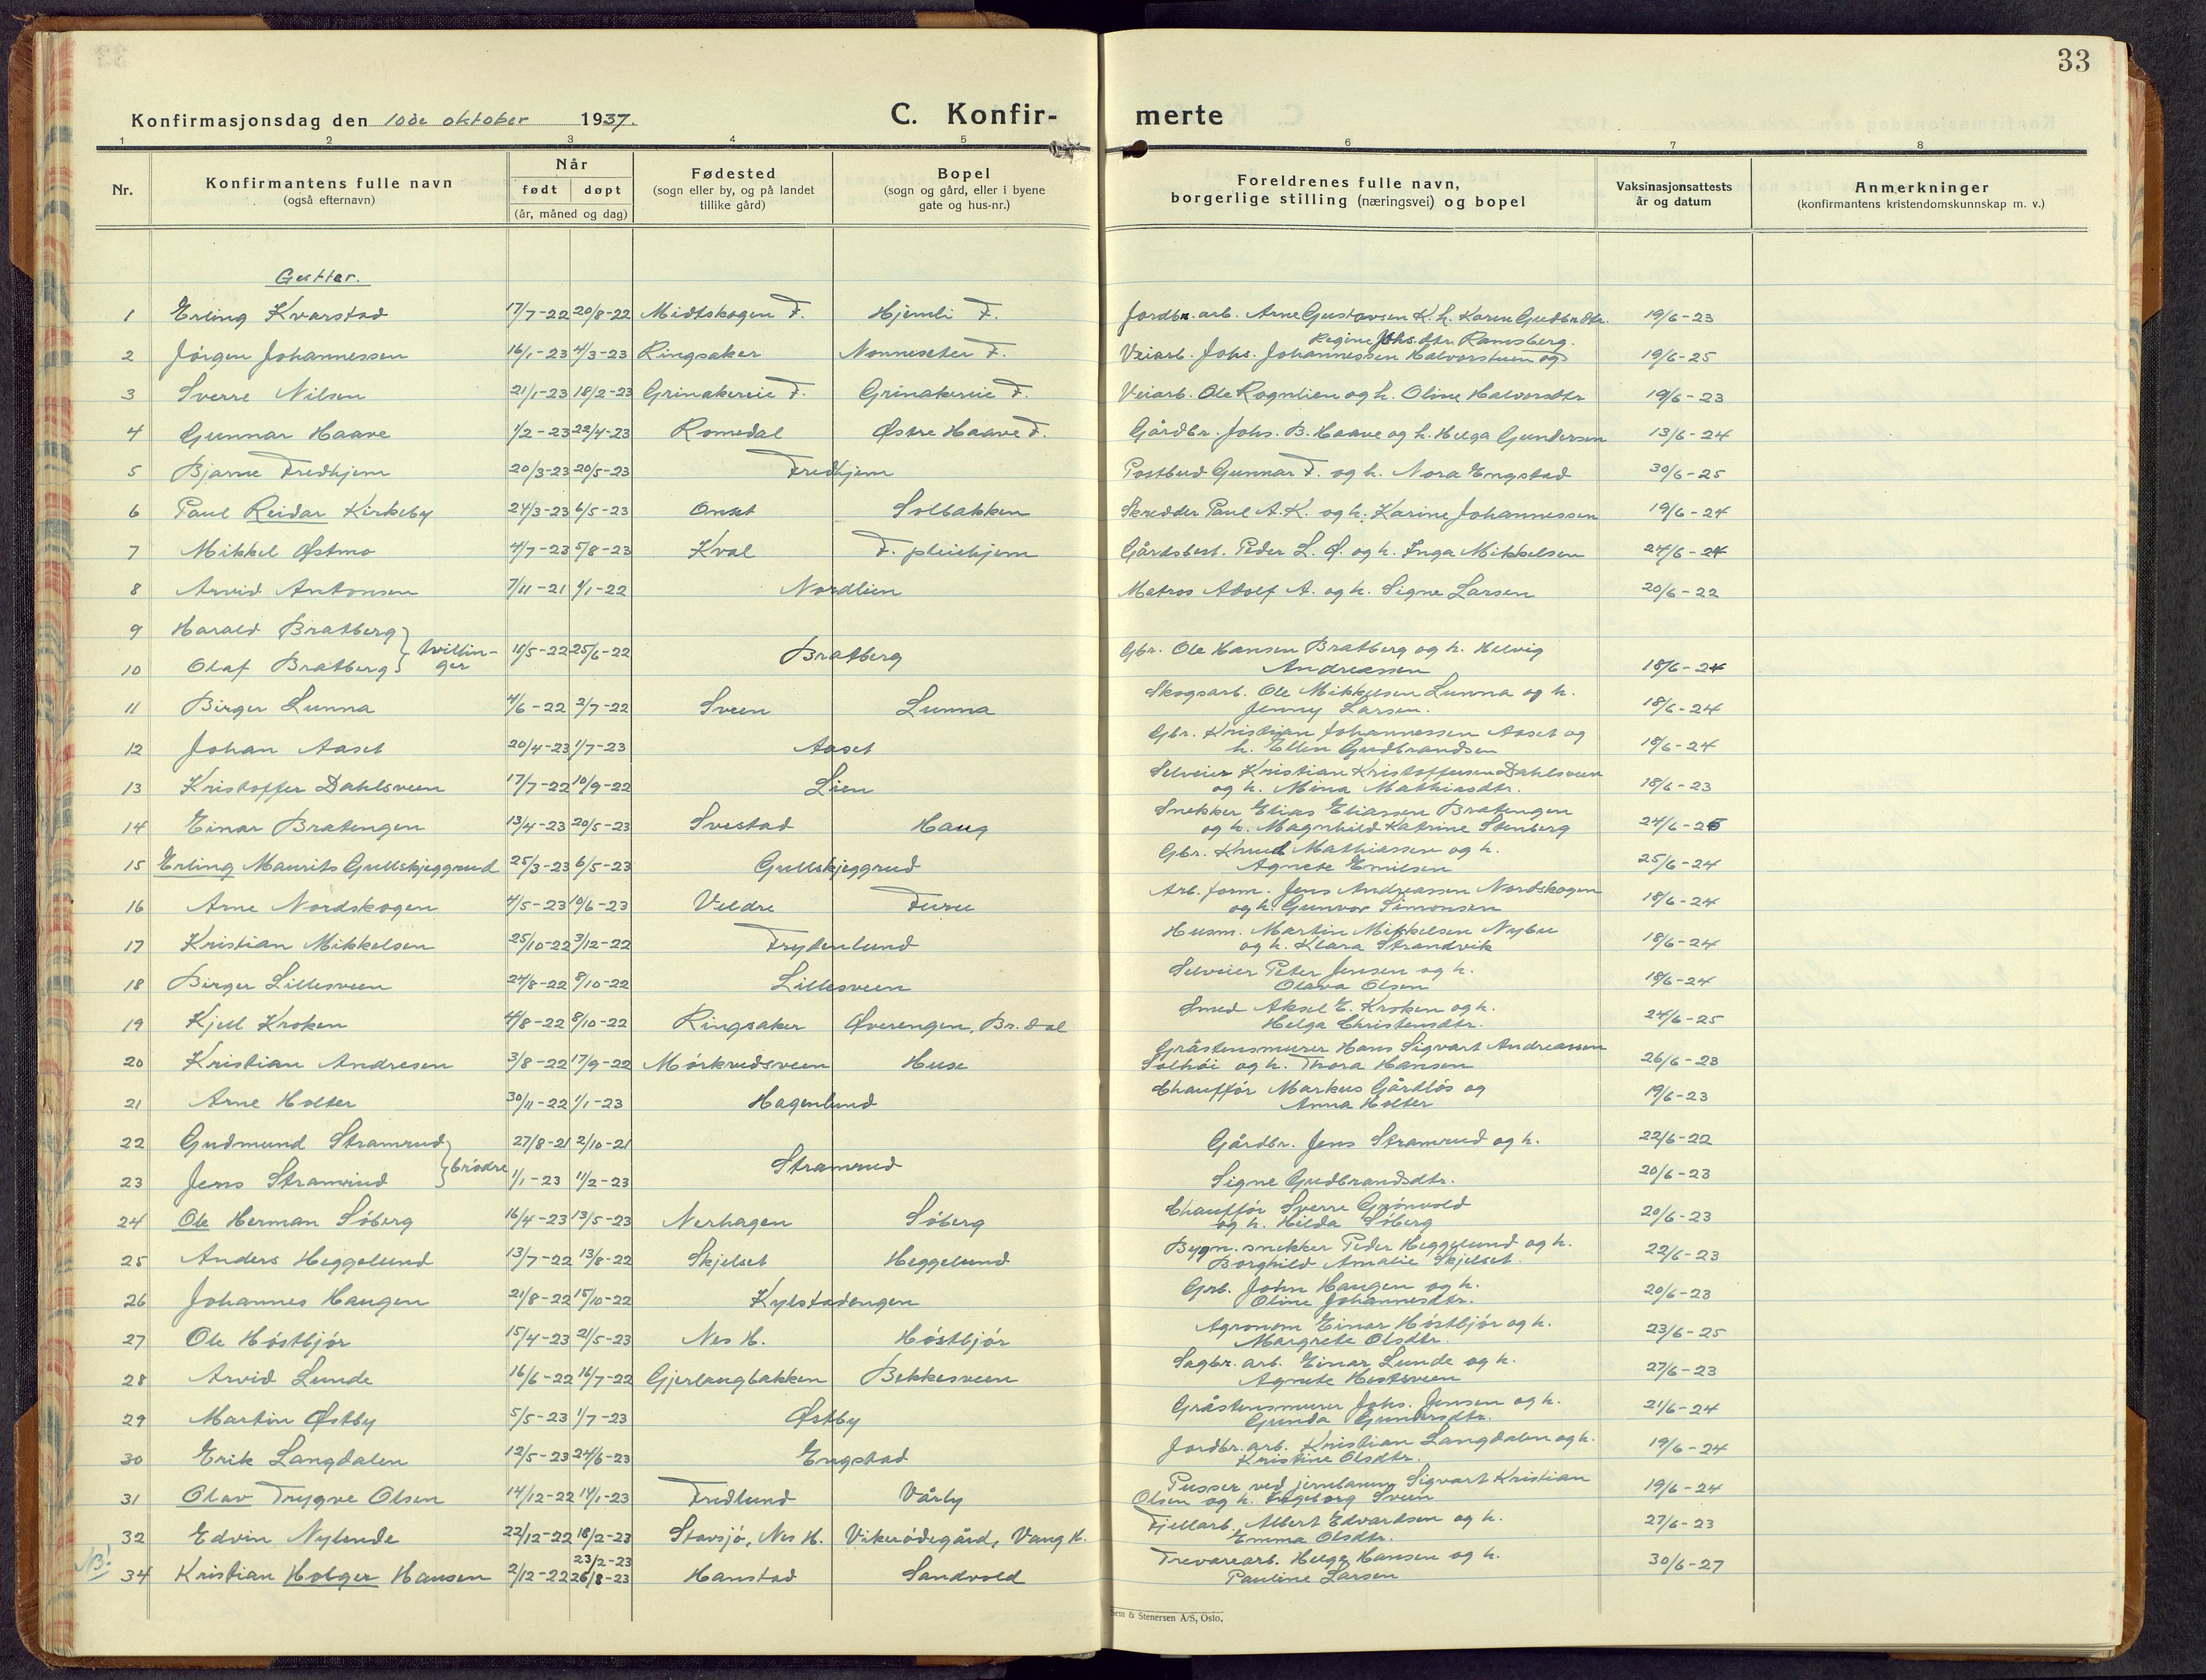 33
Konfirmasjonsdag den 10de oktober 1937.
C. Konfir-
merte
1 2 3 4 5 6 7 8
Nr.
Konfirmantens fulle navn
(også efternavn)
Når
født døpt
(år, måned og dag)
Fødested
(sogn eller by, og på landet
tillike gård)
Bopel
(sogn og gård, eller i byene
gate og hus-nr.)
Foreldrenes fulle navn,
borgerlige stilling (næringsvei) og bopel
Vaksinasjonsattests
år og datum
Anmerkninger
(konfirmantens kristendomskunnskap m. v.)
Gutter.
1 Erling Kvarstad 17/7-22 20/8-22 Midtskogen F. Hjemli F. Jordbr. arb. Arne Gustavsen K. h. Karen Gudbrdtr. 19/6-23
Regine Johs.dtr. Ramsberg.
2 Jörgen Johannessen 16/1-23 4/3-23 Ringsaker Nonneseter F. Veiarb. Johs. Johannessen Halvorstuen og 19/6-25
3 Sverre Nilsen 21/1-23 18/2-23 Grinakereie F. Grinakereie F. Veiarb. Ole Rognlien og h. Oline Halvorsdtr 19/6-23
4 Gunnar Haave 1/2-23 22/4-23 Romedal Østre Haave F. Gårdbr. Johs. B. Haave og h. Helga Gundersen 13/6-24
5 Bjarne Fredhjem 20/3-23 20/5-23 Fredhjem Postbud Gunnar F. og h. Nora Engstad 30/6-25
6 Paul Reidar Kirkeby 24/3-23 6/5-23 Onset Solbakken Skredder Paul A. K. og h. Karine Johannessen 19/6-24
7 Mikkel Østmo 4/7-23 5/8-23 Kval F. pleiehjem Gårdsbest. Peder L. Ø. og h. Inga Mikkelsen 24/6-24
8 Arvid Antonsen 7/11-21 1/1-22 Nordlien Matros Adolf A. og h. Signe Larsen 20/6-22
9 Harald Bratberg
10 Olaf Bratberg tvillin-
ger 18/5-22 25/6-22 Bratberg Gbr. Ole Hansen Bratberg og h. Helvig
Andreassen 18/6-24
11 Birger Lunna 4/6-22 2/7-22 Sveen Lunna Skogsarb. Ole Mikkelsen Lunna og h.
Jenny Larsen. 18/6-24
12 Johan Aaset 20/4-23 1/7-23 Aaset Gbr. Kristian Johannessen Aaset og
h. Ellen Gudbrandsen 18/6-24
13 Kristoffer Dahlsveen 17/7-22 10/9-22 Lien Selveier Kristian Kristoffersen Dahlsveen
og h. Mina Mathiasdtr. 18/6-23
14 Einar Bratengen 13/4-23 20/5-23 Svestad Haug Snekker Elias Eliassen Bratengen
og h. Magnhild Katrine Stenberg 24/6-25
15 Erling Maurits Gullskjeggrud 25/3-23 6/5-23 Gullskjeggrud Gbr. Knud Mathiassen og h.
Agnete Emilsen 25/6-24
16 Arne Nordskogen 4/5-23 10/6-23 Veldre Furu Arb. form. Jens Andreassen Nordskogen
og h. Gunvor Simonsen 18/6-24
17 Kristian Mikkelsen 25/10-22 3/12-22 Frydenlund Husm. Martin Mikkelsen Nybu
og h. Klara Strandvik 18/6-24
18 Birger Lillesveen 24/8-22 8/10-22 Lillesveen Selveier Peter Jensen og h.
Olava Olsen 18/6-24
19 Kjell Kroken 4/8-22 8/10-22 Ringsaker Øverengen, Br.dal Smed Aksel E. Kroken og h.
Helga Christensdtr. 24/6-25
20 Kristian Andresen 3/8-22 17/9-22 Mørkvedsveen Huse Gråstensmurer Hans Sigvart Andreassen
Solhöi og h. Thora Hansen 26/6-23
21 Arne Holter 30/11-22 1/1-23 Hagenlund Chauffør Markus Gårdløs og
Anna Holter 19/6-23
22 Gudmund Stramrud 27/8-21 2/10-21 Gårdbr. Jens Stramrud og h. 22/6-22
brödre Stramrud
23 Jens Stramrud 1/1-23 11/2-23 Signe Gudbrandsdtr. 20/6-23
24 Ole Herman Söberg 16/4-23 13/5-23 Nerhagen Söberg Chauffør Sverre Grönvold
og h. Hilda Söberg 20/6-23
25 Anders Heggelund 13/7-22 13/8-22 Skjelset Heggelund Bygn. snekker Peder Heggelund og h.
Borghild Amalie Skjelset. 22/6-23
26 Johannes Haugen 21/8-22 15/10-22 Kylstadengen Grb. John Haugen og h.
Oline Johannesdtr. 20/6-23
27 Ole Höstbjör 15/4-23 21/5-23 Nes H. Höstbjör Agronom Einar Höstbjör og h.
Margrete Olsdtr. 23/6-25
28 Arvid Lunde 16/6-22 16/7-22 Gjerlaugbakken Bekkesveen Sagbr. arb. Einar Lunde og h.
Agnete Hestsveen 27/6-23
29 Martin Østby 5/5-23 1/7-23 Østby Gråstensmurer Johs. Jensen og h.
Gunda Gunersdtr. 21/6-24
30 Erik Langdalen 12/5-23 24/6-23 Engstad Jordbr. arb. Kristian Langdalen og h.
Kristine Olsdtr. 19/6-24
31 Olav Trygve Olsen 14/12-22 14/1-23 Fredlund Vårly Pusser ved jernbanen Sigvart Kristian
Olsen og h. Ingeborg Sveen 19/6-24
32 Edvin Nylende 22/12-22 18/2-23 Stavsjö, Nes H. Vikerödegård, Vang H. Fjellarb. Albert Edvardsen og h.
Emma Olsdtr. 27/6-23
23/2-23
NB! 34 Kristian Holger Hansen 2/12-22 26/8-23 Hanstad Sandvold Trevarearb. Helge Hansen og h.
Pauline Larsen 30/6-27
Sem & Stenersen A/S, Oslo.